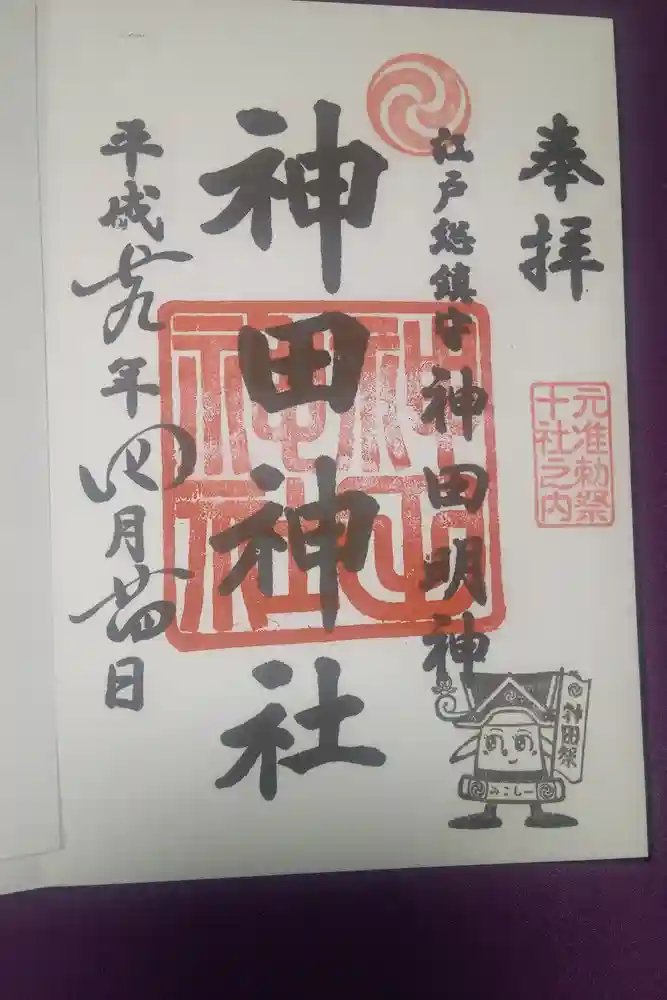 奉拝
元准勅祭
十社之内
江戸総鎮守神田明神
神田神社
神田神社
平成廿九年四月廿四日
神田祭
みこしー